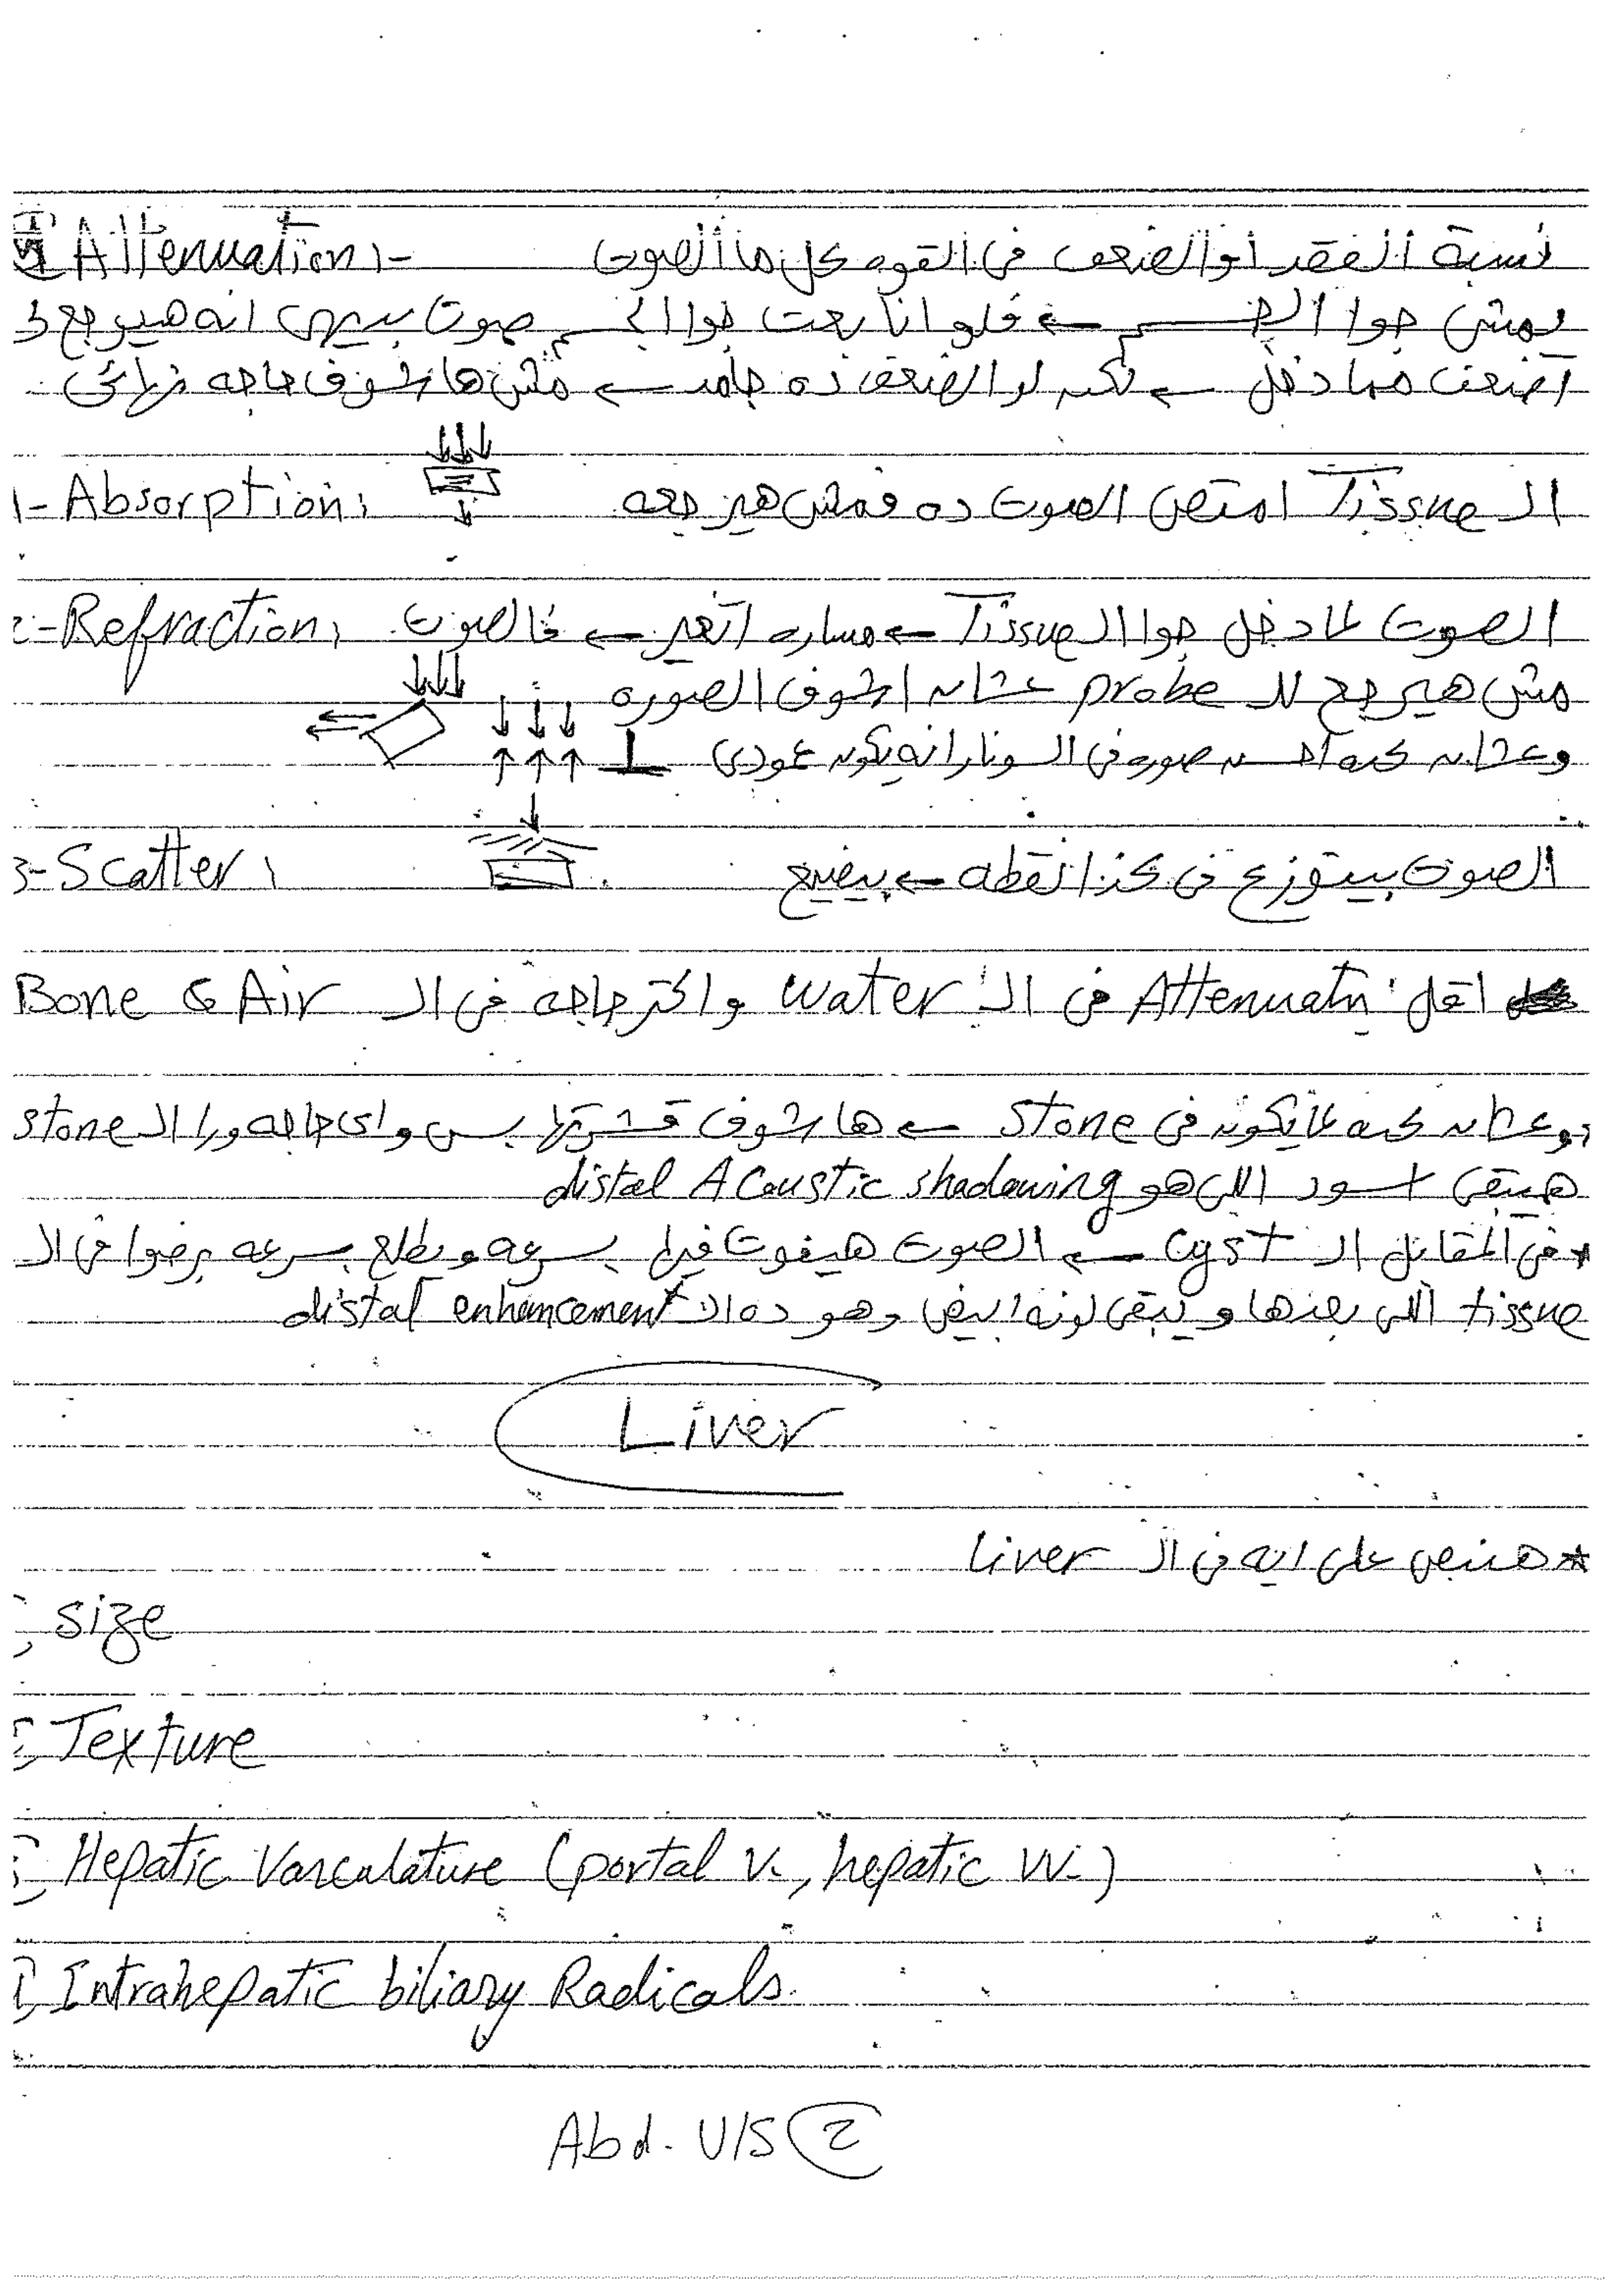 Attenuation:- نسبة الفقد أو الضعف في القوه كل ما الصوت
يمشى جوا الجسم ← فلو انا بعت جوا الجسم صوت بديهى انه هيرجع
أضعف مما دخل ← لكن لو الضعف ده جامد ← مش هاشوف حاجه نهائى
1- Absorption: الـ Tissue امتص الصوت ده فمش هيرجعه
2- Refraction: الصوت لما دخل جوا الـ Tissue ← مساره اتغير ← فالصوت
مش هيرجع للـ probe عشان اشوف الصوره
وعشان كده أحسن صوره فى السونار انه يكون عمودى ⊥
3- Scatter: الصوت بيتوزع فى كذا نقطه ← بيضيع
اقل Attenuatn فى الـ water واكتر حاجه فى الـ Bone & Air
وعشان كده لما يكون فى stone ← هاشوف قشرتها بس واى حاجه ورا الـ stone
هيبقى اسود اللى هو distal Acoustic shadowing
* فى المقابل الـ cyst ← الصوت هيفوت فيها بسرعه ويطلع بسرعه برضوا فى الـ
tissue اللى بعدها و يبقى لونه ابيض وهو ده الـ distal enhancement
Liver
* هنبص على ايه فى الـ liver
size
Texture
Hepatic Vasculature (portal v., hepatic vv.)
Intrahepatic biliary Radicals.
Abd. U/S 2